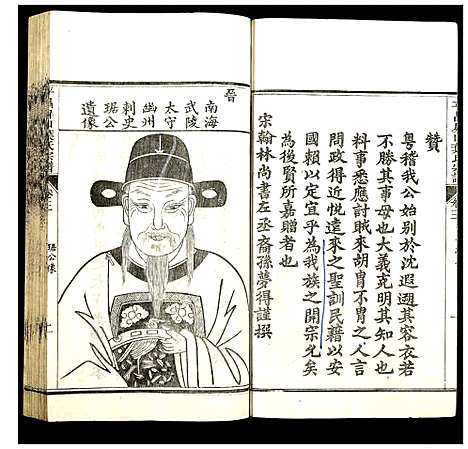 贊
粵稽我公始別於沈遐邇其容衣若
不勝其事母也大義克明其知人也
料事悉應討賊來胡胄不胃之人言
問政得近悅遠來之聖訓民藉以安
國賴以定宜乎為我族之開宗允矣
為後賢所嘉贈者也
宋翰林尚書左丞裔孫夢得謹撰
晉
南海
武陵
太守
幽州
刺史
琚公
遺像
琚公像